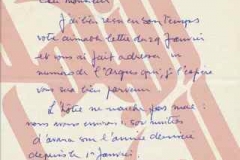 Cher Monsieur
J'ai bien reçu en son temps
votre aimable lettre du 29 Janvier
et vous ai fait adresser un
numéro de l'"Argus qui, je l'espère
vous sera bien parvenu.
L'hôtel ne marche pas mal :
nous avons environ 1.500 nuitées
d'avance sur l'année dernière
depuis le 1er Janvier.